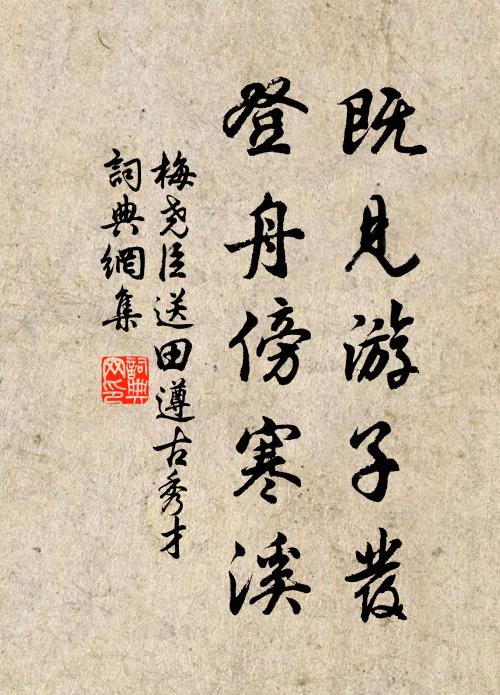 既見游子發
登舟傍寒溪
梅尧臣送田遵古秀才
詞典網集
詞典網印